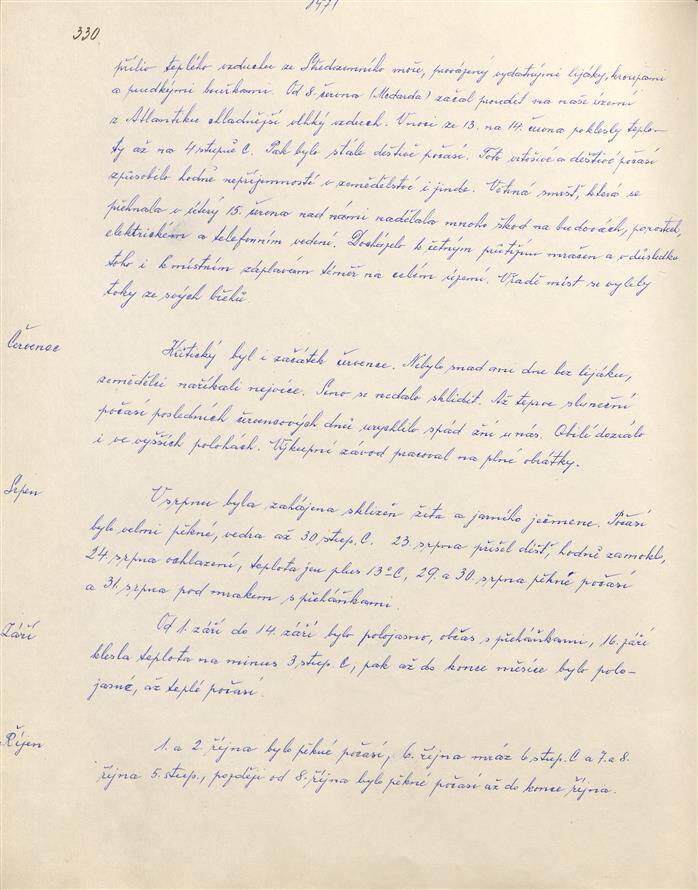 1971
330
příliv teplého vzduchu ze Středozemního moře, provázený vydatnými lijáky, kroupami
a prudkými bouřkami. Od 8. června (Medarda) začal proudit na naše území
z Atlantiku chladnější vlhký vzduch. V noci ze 13. na 14. června poklesly teplo-
ty až na 4 stupně C. Pak bylo stále deštivé počasí. Toto vrtošivé a deštivé počasí
způsobilo hodně nepříjemností v zemědělství i jinde. Větrná smršť, která se
přehnala v úterý 15. června nad námi nadělala mnoho škod na budovách, porostech,
elektrickém a telefonním vedení. Docházelo k četným průtržím mračen a v důsledku
toho i k místním záplavám téměř na celém území. V řadě míst se vylily
toky ze svých břehů.
Červenec
Kritický byl i začátek července. Nebylo snad ani dne bez lijáku,
zemědělci naříkali nejvíce. Seno se nedalo sklidit. Až teprve sluneční
počasí posledních červencových dnů urychlilo spád žní u nás. Obilí dozrálo
i ve vyšších polohách. Výkupní závod pracoval na plné obrátky.
Srpen
V srpnu byla zahájena sklizeň žita a jarního ječmene. Počasí
bylo velmi pěkné, vedra až 30 stup. C. 23. srpna přišel déšť, hodně zamoklo,
24. srpna ochlazení, teplota jen plus 13°C, 29. a 30. srpna pěkné počasí
a 31. srpna pod mrakem s přeháňkami.
Září
Od 1. září do 14. září bylo polojasno, občas s přeháňkami, 16. září
klesla teplota na minus 3 stup. C, pak až do konce měsíce bylo polo-
jasné, až teplé počasí.
Říjen
1. a 2. října bylo pěkné počasí, 6. října mráz 6 stup. C a 7. a 8.
října 5 stup., později od 8. října bylo pěkné počasí až do konce října.